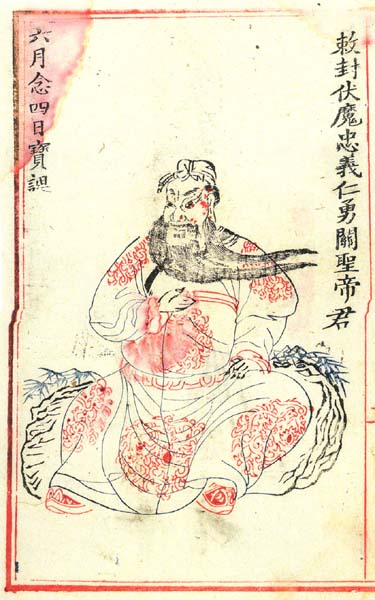 敕封伏魔忠義仁勇關聖帝君
六月念四日寶誕